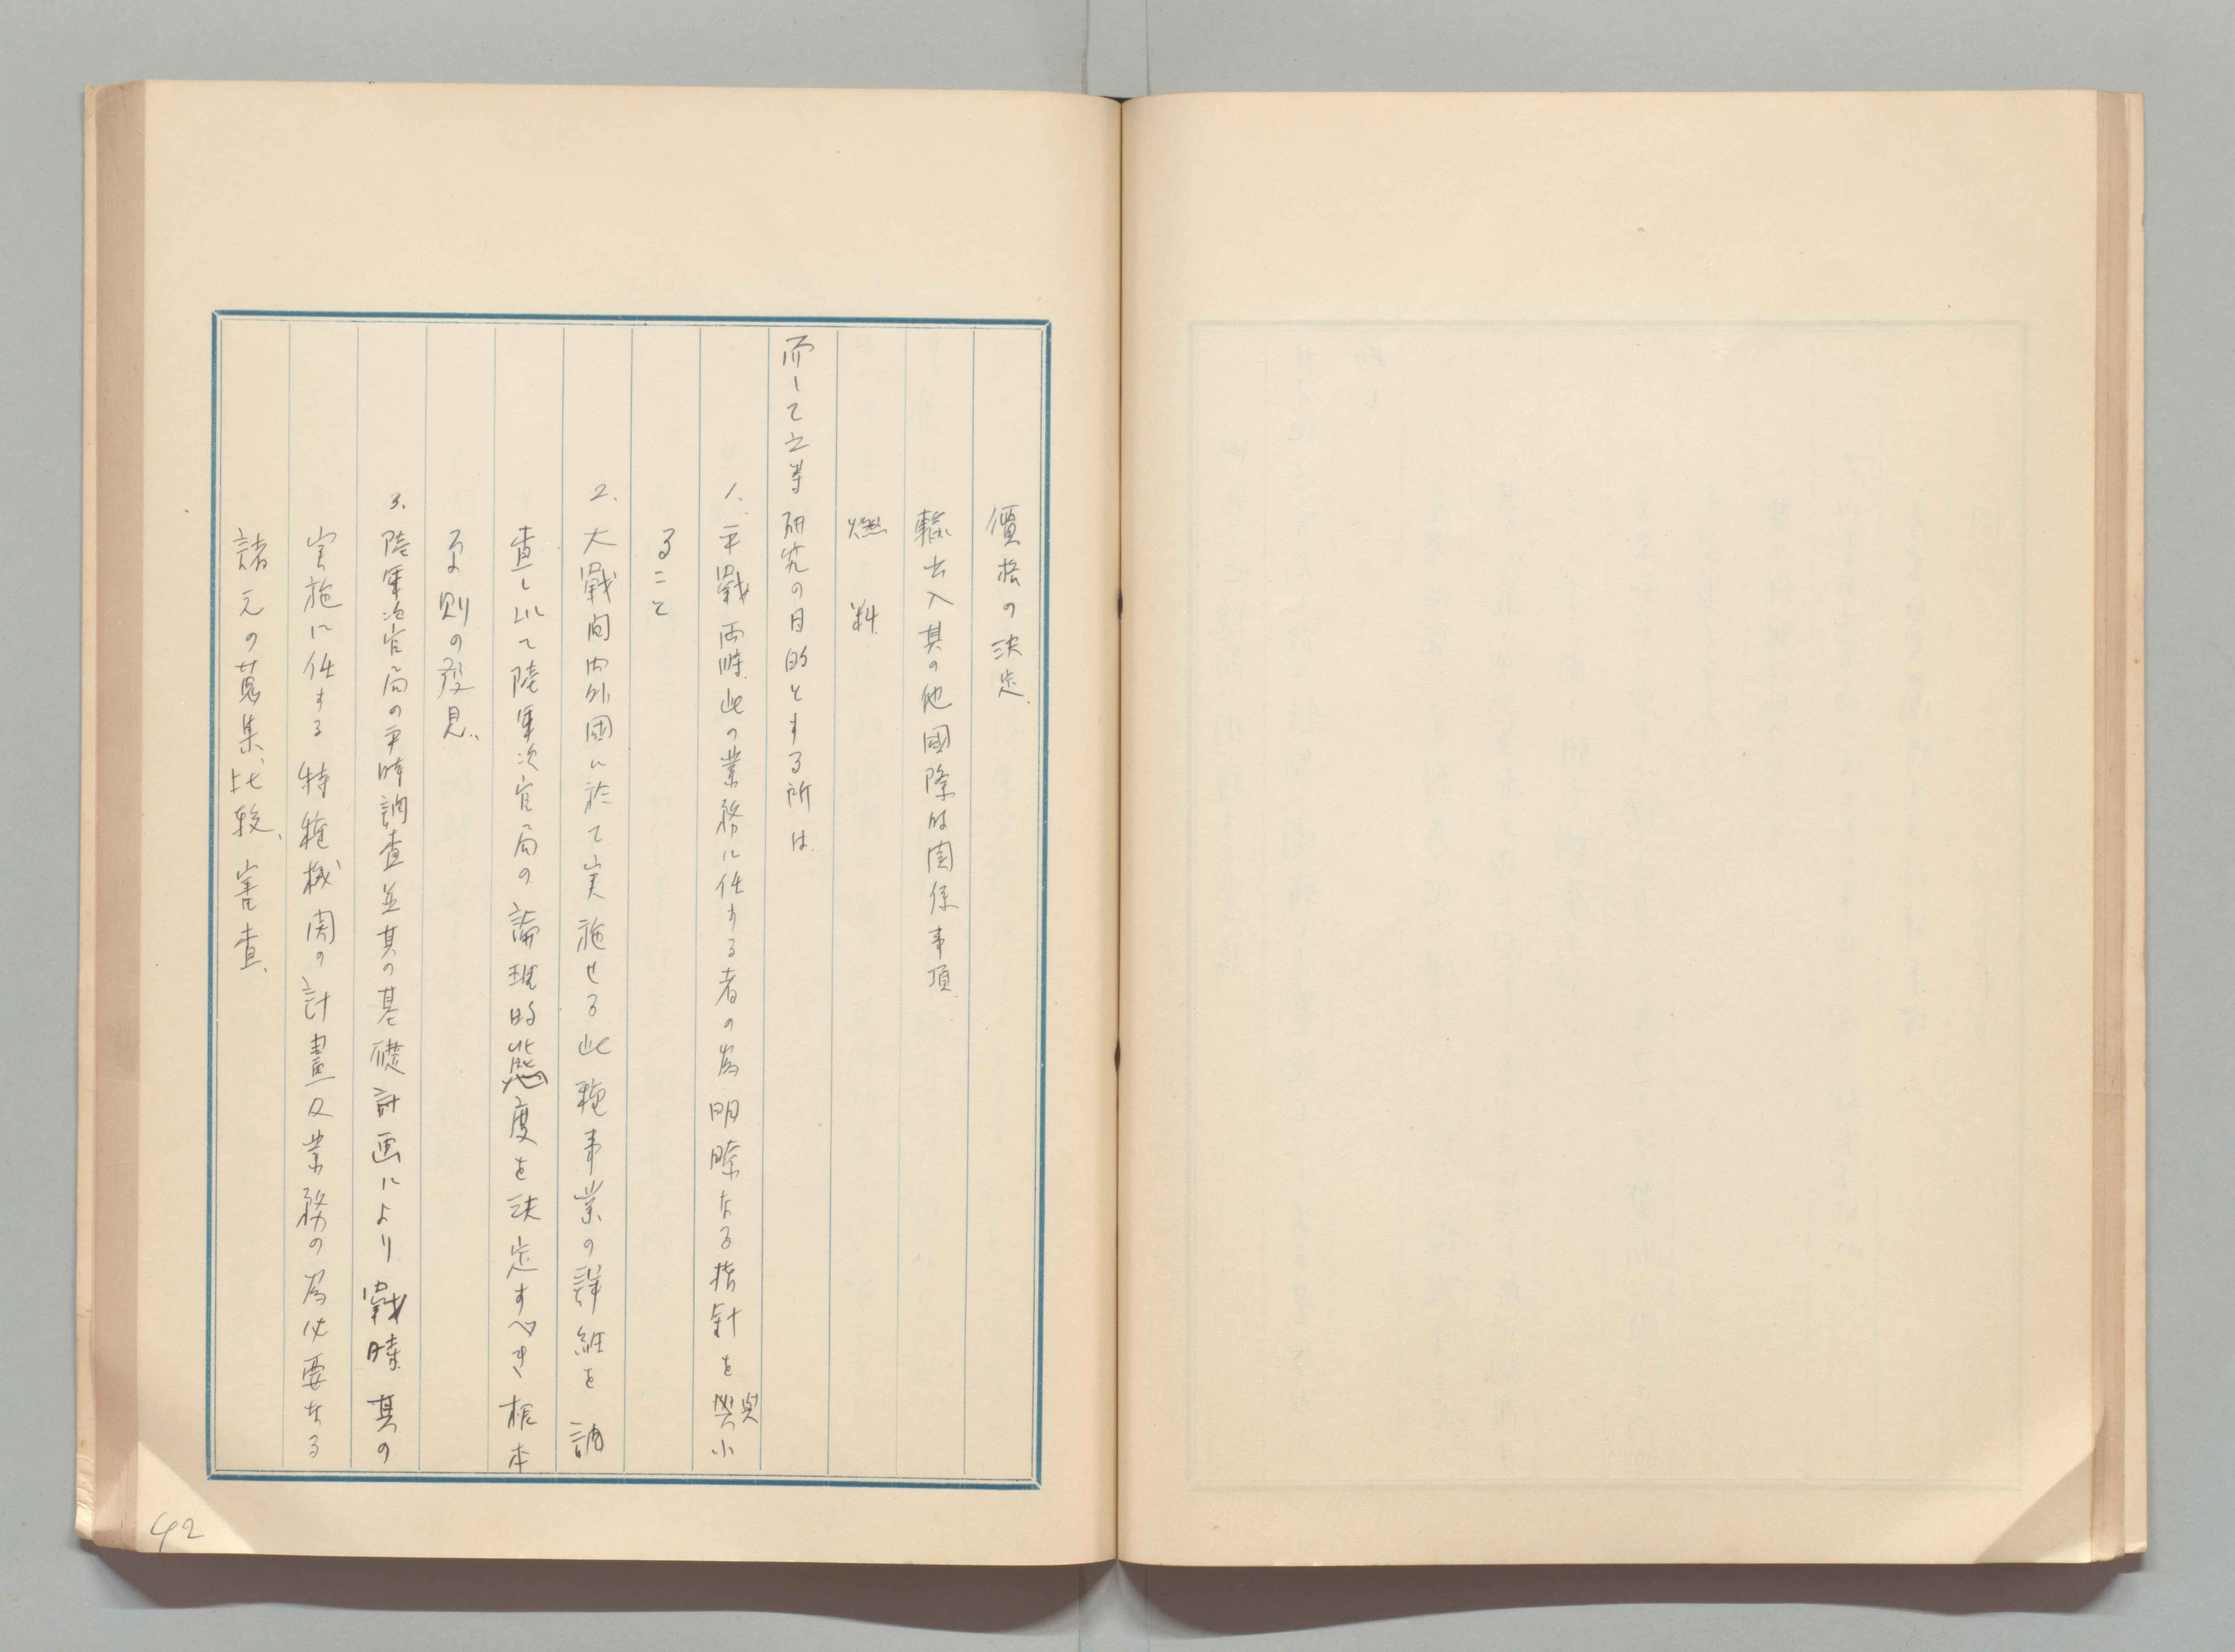 價格の決定
輸出入其の他國際的関係事項
燃料
而して之等研究の目的とする所は
1. 平戰両時此の業務に任する者の為明瞭なる指針を與ふ
ること
2. 大戰間内外國に於て実施せる此種事業の詳細を調
査し以て陸軍次官局の論理的態度を決定すべき根本
原則の發見、
3. 陸軍次官局の平時調査並其の基礎計画により戰時其の
実施に任する特種機関の計畫及業務の為必要なる
諸元の蒐集、比較、審査、
42